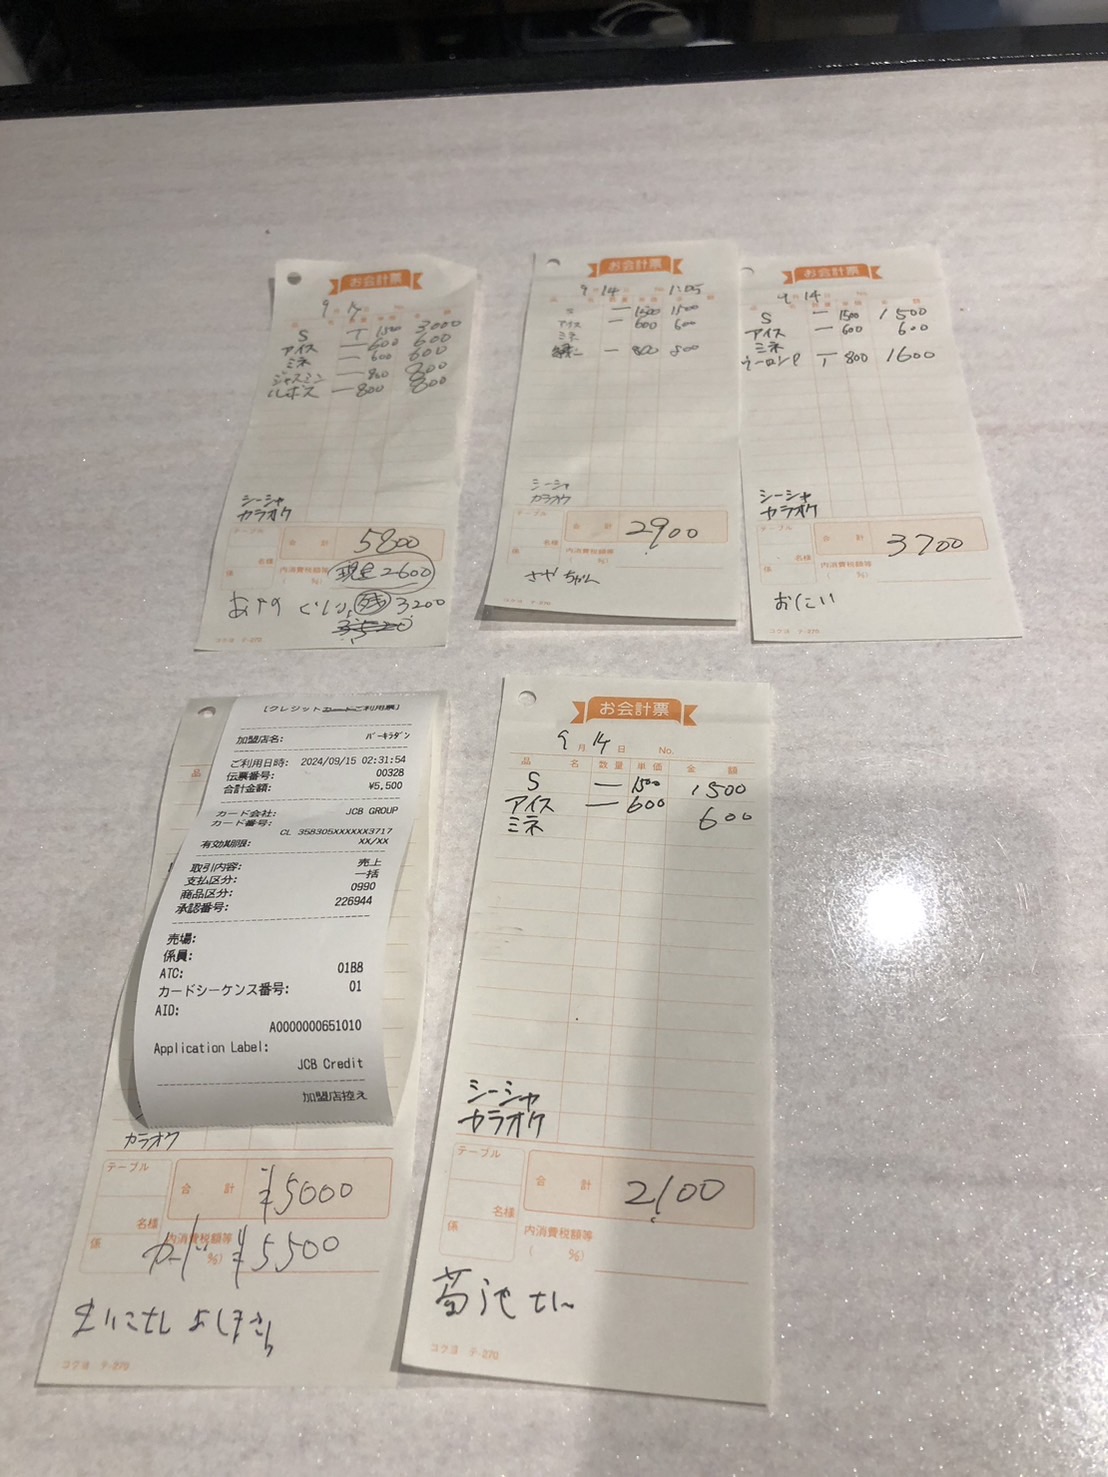 お会計票
9月14日 No.
品 名 数量 単価 金 額
S T 1500 3000
アイス 一 600 600
ミネ 一 600 600
ジャスミン 一 800 800
ルイボス 一 800 800
シーシャ
カラオケ
テーブル
合 計 5800
名様
係
内消費税額等
( %)
現金2600
残 3200
コクヨ テ-270
お会計票
9月14日 No. 1:05
S 一 1500 1500
アイス 一 600 600
ミネ
一 800 800
シーシャ
カラオケ
テーブル
合 計 2900
名様
係
内消費税額等
( %)
さやちゃん
お会計票
9月14日
S 一 1500 1500
アイス 一 600 600
ミネ
ウーロンP T 800 1600
シーシャ
カラオケ
テーブル
合 計 3700
名様
係
内消費税額等
( %)
おにい
コクヨ テ-270
[クレジットカードご利用票]
加盟店名: バーキラダン
ご利用日時: 2024/09/15 02:31:54
伝票番号: 00328
合計金額: ¥5,500
カード会社: JCB GROUP
カード番号:
CL 358305XXXXXX3717
有効期限: XX/XX
取引内容: 売上
支払区分: 一括
商品区分: 0990
承認番号: 226944
売場:
係員:
ATC: 01B8
カードシーケンス番号: 01
AID:
A0000000651010
Application Label:
JCB Credit
加盟店控え
品
カラオケ
テーブル
合 計 ¥5000
名様
係
内消費税額等
%)
カード ¥5500
コクヨ テ-270
お会計票
9月14日 No.
品 名 数量 単価 金 額
S 一 1500 1500
アイス 一 600 600
ミネ
シーシャ
カラオケ
テーブル
合 計 2100
名様
係
内消費税額等
( %)
菊池さん
コクヨ テ-270